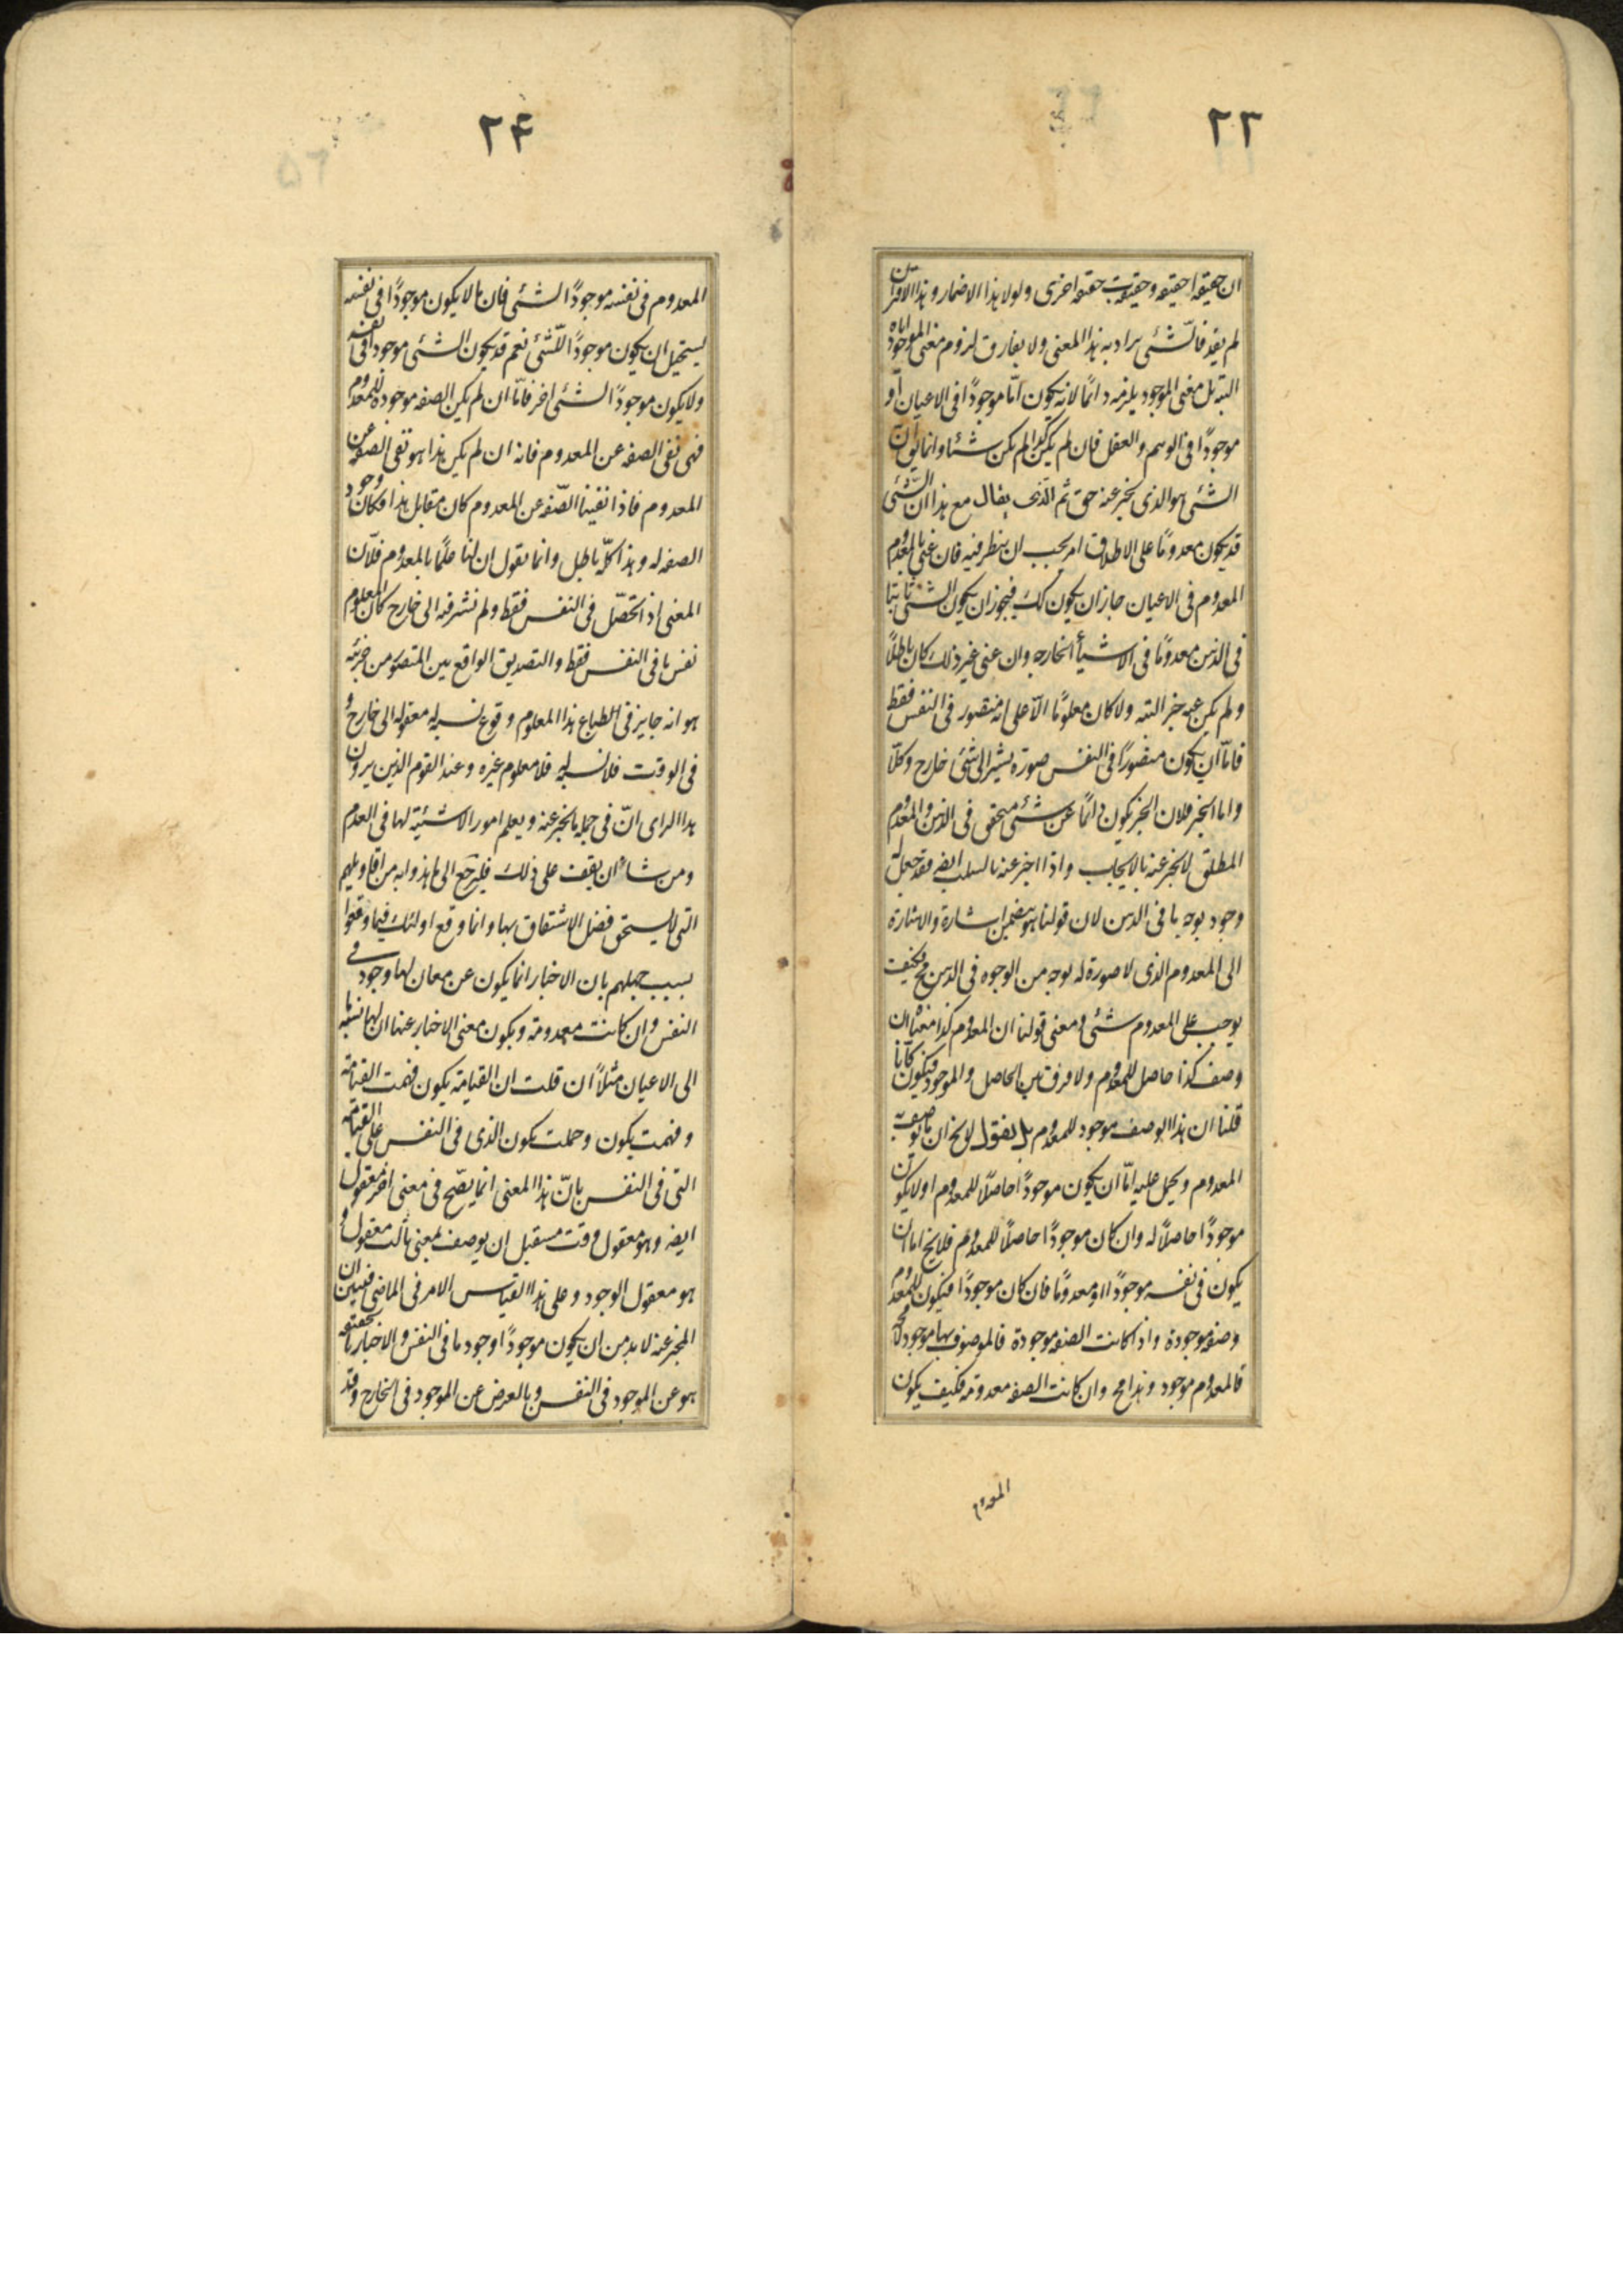 ٢٣
ان حقيقه ا حقيقه وحقيقه ب حقيقه اخرى ولولا هذا الاضمار وهذا الاقتران
لم يفد فالشئ يراد به هذا المعنى ولا يفارق لزوم معنى الموجود اياه
البته بل معنى الموجود يلزمه دائمًا لانه يكون امّا موجودًا فى الاعيان او
موجودًا فى الوهم والعقل فان لم يكن كذا لم يكن شئا وانما يق ان
الشئ هو الذى يخبر عنه حق ثم الّذى يقال مع هذا انّ الشّئ
قد يكون معدومًا على الاطلاق امر يجب ان ينظر فيه فان عنى بالمعدوم
المعدوم فى الاعيان جاز ان يكون كك فيجوز ان يكون الشئ ثابتا
فى الذهن معدومًا فى الاشيأ الخارجه وان عنى غير ذلك كان باطلًا
ولم يكن عنه خبر البته ولا كان معلومًا الّا على انه متصور فى النفس فقط
فامّا ان يكون متصورًا فى النفس صورة يشير الى شئ خارج وكلّا
واما الخبر فلان الخبر يكون دائمًا عن شئ متحقق فى الذهن والمعدوم
المطلق لا يخبر عنه بالايجاب واذا اخبر عنه بالسلب ايضه فقد جعل له
وجود بوجه ما فى الذهن لان قولنا هو يتضمن اشارة والاشارة
الى المعدوم الذى لا صورة له بوجه من الوجوه فى الذهن مح فكيف
يوجب على المعدوم شئ ومعنى قولنا ان المعدوم كذا معناه ان
وصف كذا حاصل للمعدوم ولا فرق بين الحاصل والموجود فيكون كانّا
قلنا ان هذا الوصف موجود للمعدوم بل نقول لا يخ ان ما يوصف به
المعدوم ويحمل عليه امّا ان يكون موجودًا حاصلًا للمعدوم او لا يكون
موجودًا حاصلًا له وان كان موجودًا حاصلًا للمعدوم فلا يخ اما ان
يكون فى نفسه موجودًا او معدومًا فان كان موجودًا فيكون للمعدوم
وصفه موجودة واذا كانت الصفه موجودة فالموصوف بها موجود لا محه
فالمعدوم موجود وهذا مح وان كانت الصفه معدومه فكيف يكون
المعدوم
٢۴
المعدوم فى نفسه موجودًا لشئ فان ما لا يكون موجودًا فى نفسه
يستحيل ان يكون موجودًا للّشئ نعم قد يكون الشئ موجودا فى نفسه
ولا يكون موجودًا لشئ اخر فامّا ان لم يكن الصفه موجوده للمعدوم
فهى نفى الصفه عن المعدوم فانه ان لم يكن هذا هو نفى الصفه عن
المعدوم فاذا نفينا الصّفه عن المعدوم كان مقابل هذا فكان وجود
الصفه له وهذا كلّه باطل وانما نقول ان لنا علمًا بالمعدوم فلانّ
المعنى اذا تحصّل فى النفس فقط ولم نشر فيه الى خارج كان المعلوم
نفس ما فى النفس فقط والتصديق الواقع بين المتصور من جزئيه
هو انه جايز فى الطباع هذا المعلوم وقوع نسبه له معقوله الى خارج و
فى الوقت فلا نسبه له فلا معلوم غيره وعند القوم الذين يرون
هذا الراى انّ فى جمله ما يخبر عنه ويعلم امور الا شيئيّة لها فى العدم
ومن شاء ان يقف على ذلك فليرجع الى ما هذوا به من اقاويلهم
التى لا يستحق فضل الاشتغال بها وانما وقع اولئك فيما وقعوا
بسبب جهلهم بان الاخبار انما يكون عن معان لها وجود فى
النفس وان كانت معدومة ويكون معنى الاخبار عنها ان لها نسبة ما
الى الاعيان مثلًا ان قلت ان القيامة يكون فهمت القيامة
وفهمت يكون وحملت يكون الذى فى النفس على القيامه
التى فى النفس بانّ هذا المعنى انما يصّح فى معنى اخر معقول
ايضه وهو معقول وقت مستقبل ان يوصف بمعنى ثالث معقول و
هو معقول الوجود وعلى هذا القياس الامر فى الماضى فتبين ان
المخبر عنه لابد من ان يكون موجودًا وجود ما فى النفس والاخبار بالحقيقه
هو عن الموجود فى النفس وبالعرض عن الموجود فى الخارج وقد